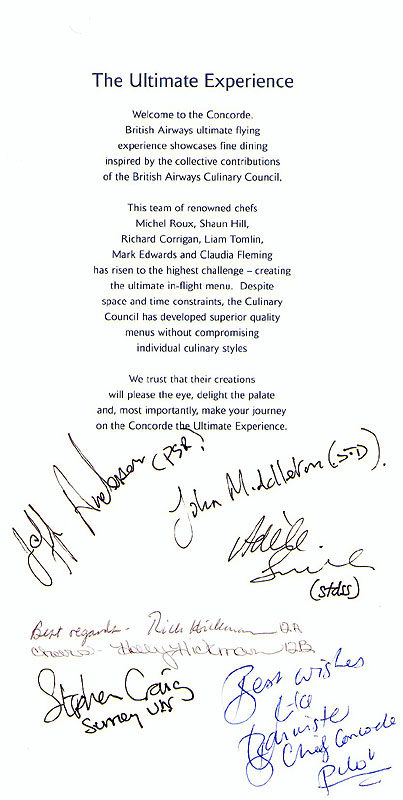 The Ultimate Experience
Welcome to the Concorde.
British Airways ultimate flying
experience showcases fine dining
inspired by the collective contributions
of the British Airways Culinary Council.
This team of renowned chefs
Michel Roux, Shaun Hill,
Richard Corrigan, Liam Tomlin,
Mark Edwards and Claudia Fleming
has risen to the highest challenge – creating
the ultimate in-flight menu. Despite
space and time constraints, the Culinary
Council has developed superior quality
menus without compromising
individual culinary styles
We trust that their creations
will please the eye, delight the palate
and, most importantly, make your journey
on the Concorde the Ultimate Experience.
Jeff Anderson (PSR)
John Middleton (STD).
Adèle
(stdss)
Best regards - Rick Hickman 12A
Cheers - Holly Hickman 12B
Stephen Craig
Surrey UK
Best wishes
Bannister
Chief Concorde
Pilot